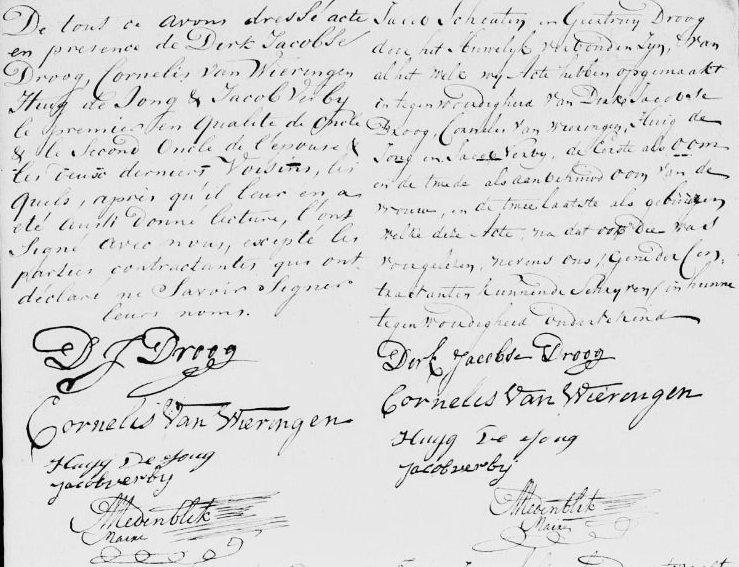 De tous ce avons dressé acte
en presence de Dirk Jacobse
Droog, Cornelis Van Wieringen
Huijg de Jong & Jacob Verby
le premier en Qualité de Oncle
& le Second Oncle de l'epouse &
les deux derniers Voisins, les
quels, après qu'il leur en a
été aussi Donné lecture, l'ont
Signé avec nous, excepté les
parties contractantes qui ont
déclaré ne Savoir Signer
leurs noms.
D J Droog
Cornelis Van Wieringen
Huijg De Jong
Jacob verby
Medenblik
Maire
Jacob Schouten en Geertruy Droog
door het Huwelyk verbonden Zyn, Van
al het welk wy Acte hebben opgemaakt
in tegenwoordigheid Van Dirk Jacobse
Droog, Cornelis Van Wieringen, Huig de
Jong en Jacob Verby, de Eerste als oom
en de twede als aanbehuwd oom van de
vrouw, en de twee laatste als gebuuren
welke deze Acte, na dat die was
voorgelezen, nevens ons, (geene der Con-
tractanten kunnende Schryven) in hunne
tegenwoordigheid ondertekend
Dirk Jacobse Droog
Cornelis Van Wieringen
Huyg De Jong
Jacob verby
Medenblik
Maire